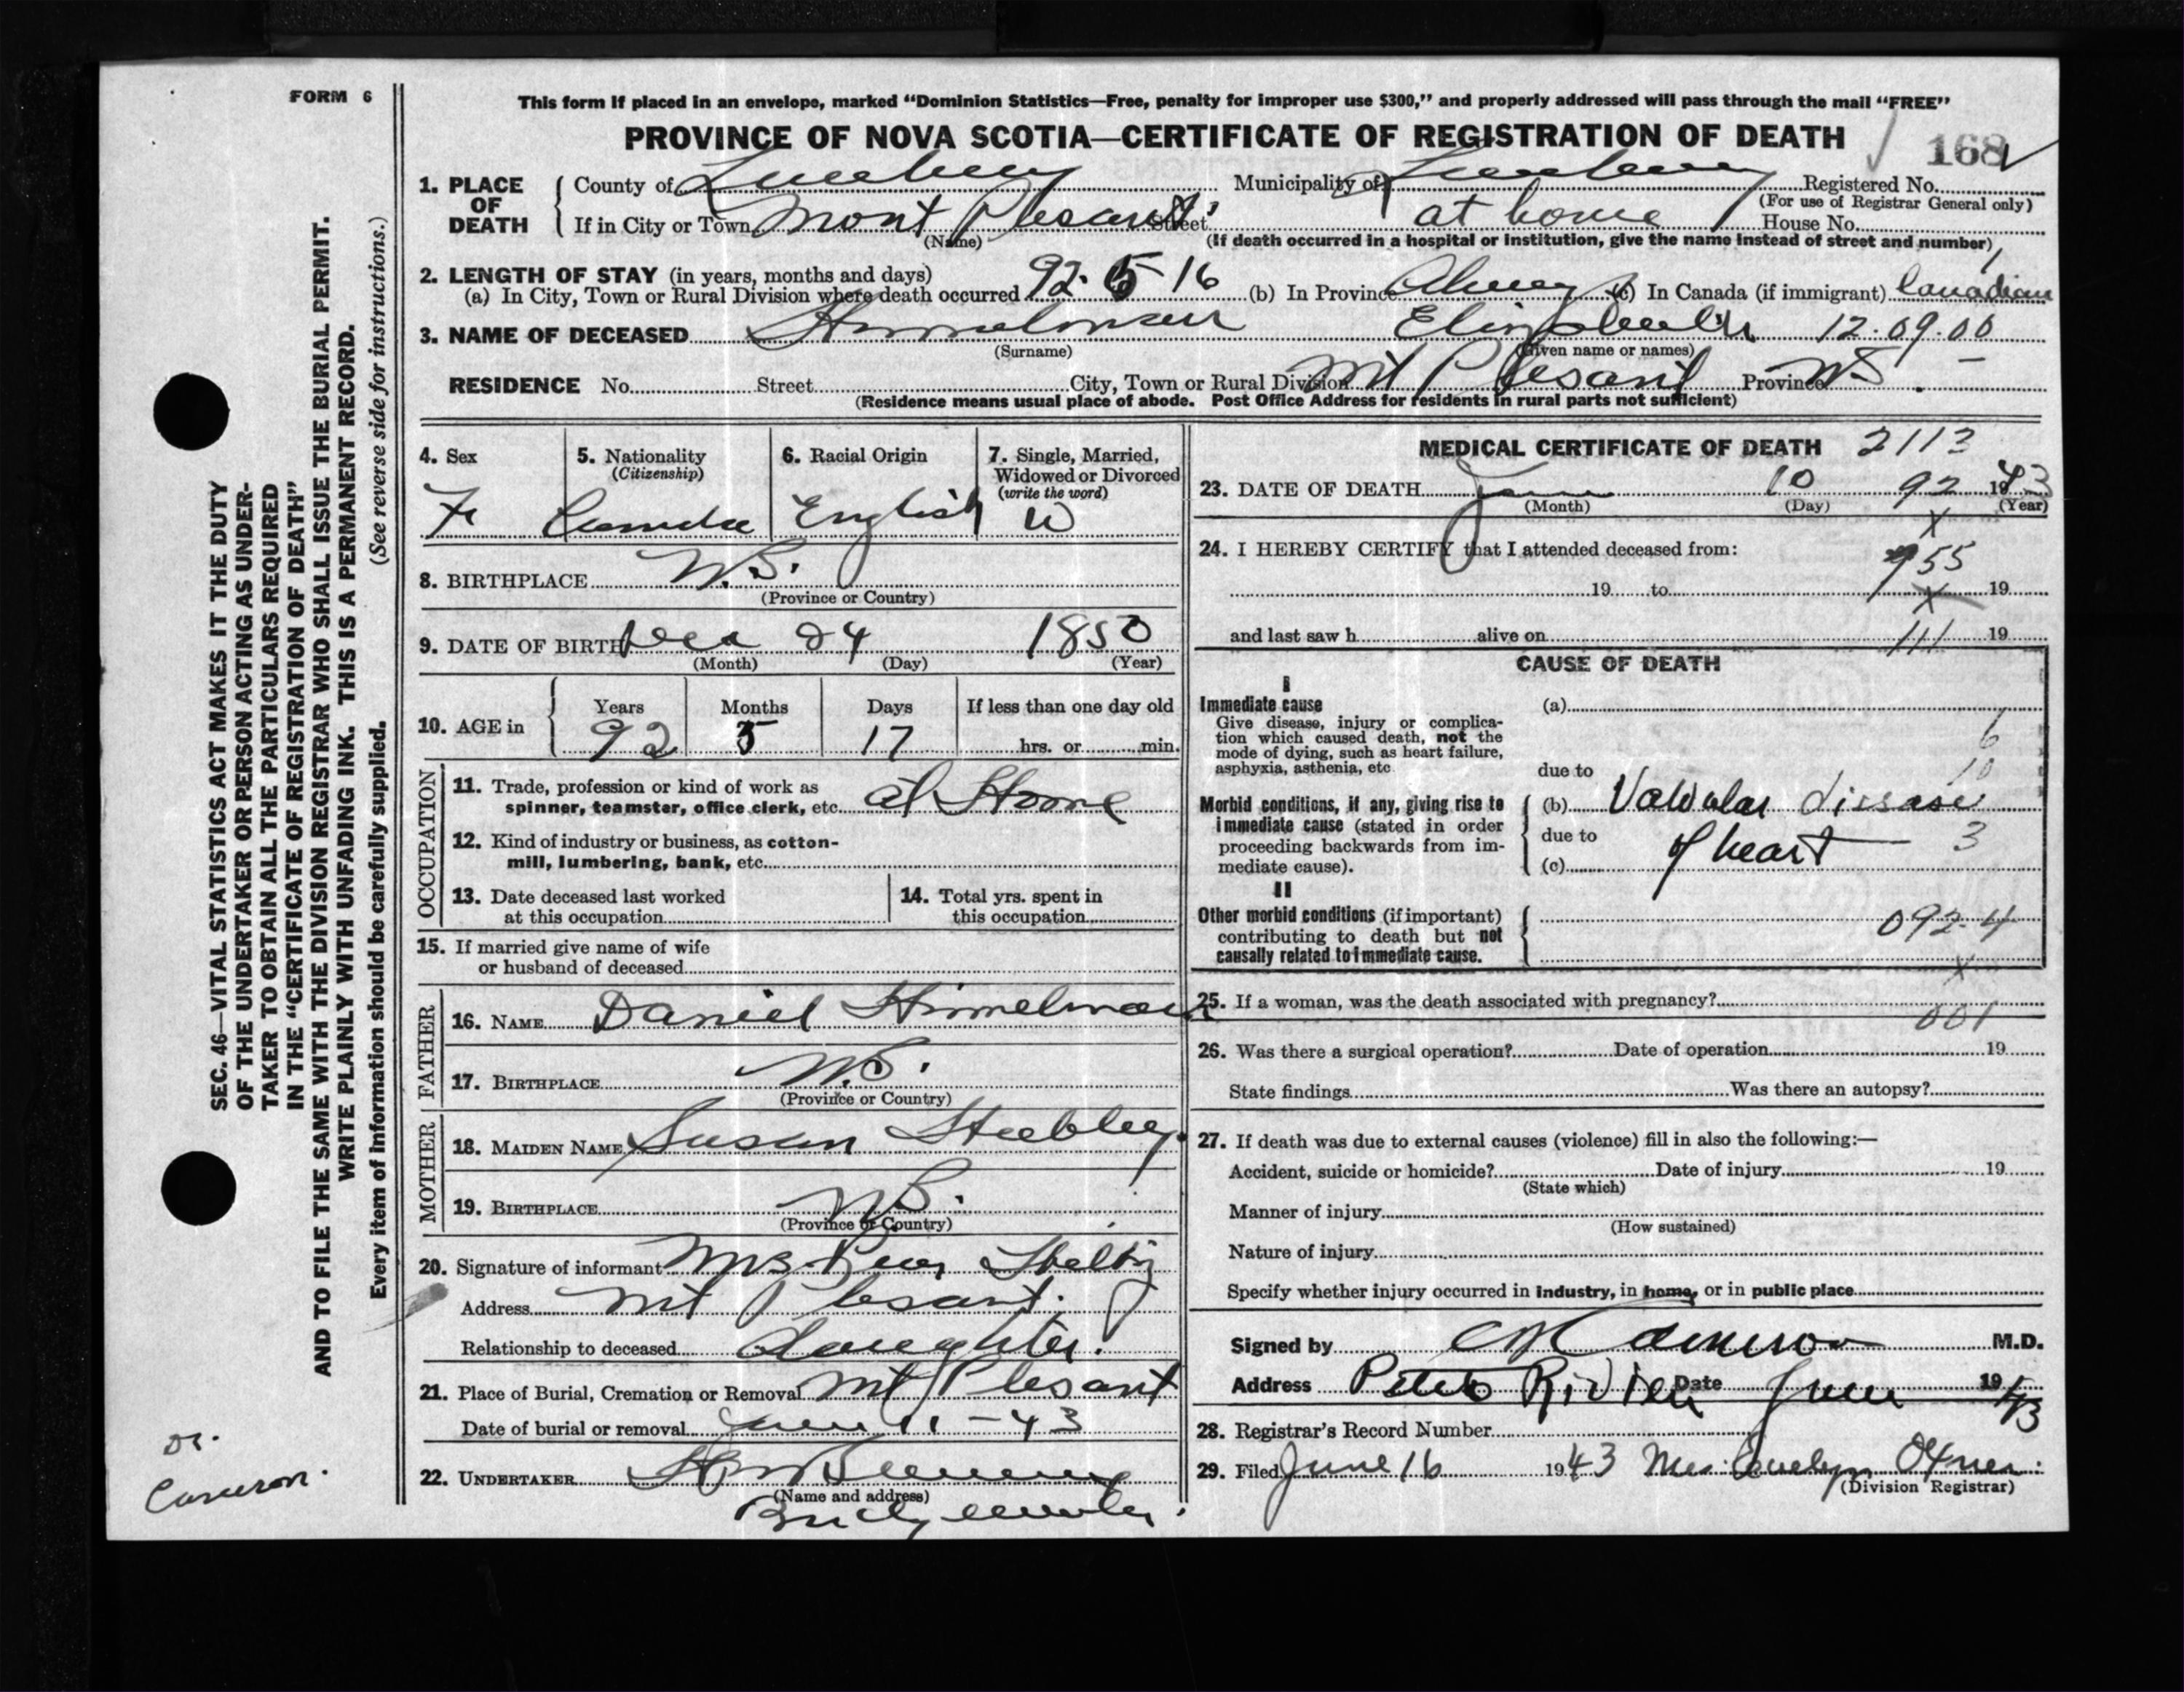 FORM 6
This form if placed in an envelope, marked “Dominion Statistics—Free, penalty for improper use $300,” and properly addressed will pass through the mail “FREE”
PROVINCE OF NOVA SCOTIA—CERTIFICATE OF REGISTRATION OF DEATH
168
1. PLACE OF DEATH
County of Lunenburg Municipality of Lunenburg Registered No.
(For use of Registrar General only)
If in City or Town Mont Plesant Street at home House No.
(Name)
(If death occurred in a hospital or institution, give the name instead of street and number)
2. LENGTH OF STAY (in years, months and days)
(a) In City, Town or Rural Division where death occurred 92. 5 16 (b) In Province Always (c) In Canada (if immigrant) Canadian
3. NAME OF DECEASED Himmelman Elizabeth 12.09.00
(Surname) (Given name or names)
RESIDENCE No. Street City, Town or Rural Division Mt Plesant Province NS.
(Residence means usual place of abode. Post Office Address for residents in rural parts not sufficient)
4. Sex 5. Nationality (Citizenship) 6. Racial Origin 7. Single, Married, Widowed or Divorced (write the word)
F Canada English W
8. BIRTHPLACE N.S.
(Province or Country)
9. DATE OF BIRTH Dec 24 1850
(Month) (Day) (Year)
10. AGE in Years Months Days If less than one day old
92 5 17 hrs. or min.
OCCUPATION
11. Trade, profession or kind of work as
spinner, teamster, office clerk, etc. at Home
12. Kind of industry or business, as cotton-
mill, lumbering, bank, etc.
13. Date deceased last worked
at this occupation
14. Total yrs. spent in
this occupation
15. If married give name of wife
or husband of deceased
FATHER
16. NAME Daniel Himelman
17. BIRTHPLACE N.S.
(Province or Country)
MOTHER
18. MAIDEN NAME Susan
19. BIRTHPLACE NS.
(Province or Country)
20. Signature of informant Mrs
Address Mt Plesant.
Relationship to deceased daughter.
21. Place of Burial, Cremation or Removal Mt Plesant
Date of burial or removal June 11-43
22. UNDERTAKER
(Name and address)
Bridgewater.
MEDICAL CERTIFICATE OF DEATH 2113
23. DATE OF DEATH June 10 92 1943
(Month) (Day) (Year)
x
24. I HEREBY CERTIFY that I attended deceased from:
955
19 to 19
x
and last saw h alive on 19
111
CAUSE OF DEATH
I
Immediate cause (a)
Give disease, injury or complica-
tion which caused death, not the
mode of dying, such as heart failure,
asphyxia, asthenia, etc
6
10
due to
Morbid conditions, if any, giving rise to
immediate cause (stated in order
proceeding backwards from im-
mediate cause).
(b) Valvular disease
due to of heart 3
(c)
II
Other morbid conditions (if important)
contributing to death but not
causally related to immediate cause.
092.4
x
25. If a woman, was the death associated with pregnancy?
001
26. Was there a surgical operation? Date of operation 19
State findings Was there an autopsy?
27. If death was due to external causes (violence) fill in also the following:—
Accident, suicide or homicide? Date of injury 19
(State which)
Manner of injury
(How sustained)
Nature of injury
Specify whether injury occurred in industry, in home, or in public place
Signed by Cameron M.D.
Address Petite Riviere Date June 1943
28. Registrar’s Record Number
29. Filed June 16 1943 Mrs. Evelyn
(Division Registrar)
SEC. 46—VITAL STATISTICS ACT MAKES IT THE DUTY
OF THE UNDERTAKER OR PERSON ACTING AS UNDER-
TAKER TO OBTAIN ALL THE PARTICULARS REQUIRED
IN THE “CERTIFICATE OF REGISTRATION OF DEATH”
AND TO FILE THE SAME WITH THE DIVISION REGISTRAR WHO SHALL ISSUE THE BURIAL PERMIT.
WRITE PLAINLY WITH UNFADING INK. THIS IS A PERMANENT RECORD.
Every item of information should be carefully supplied. (See reverse side for instructions.)
Dr.
Cameron.